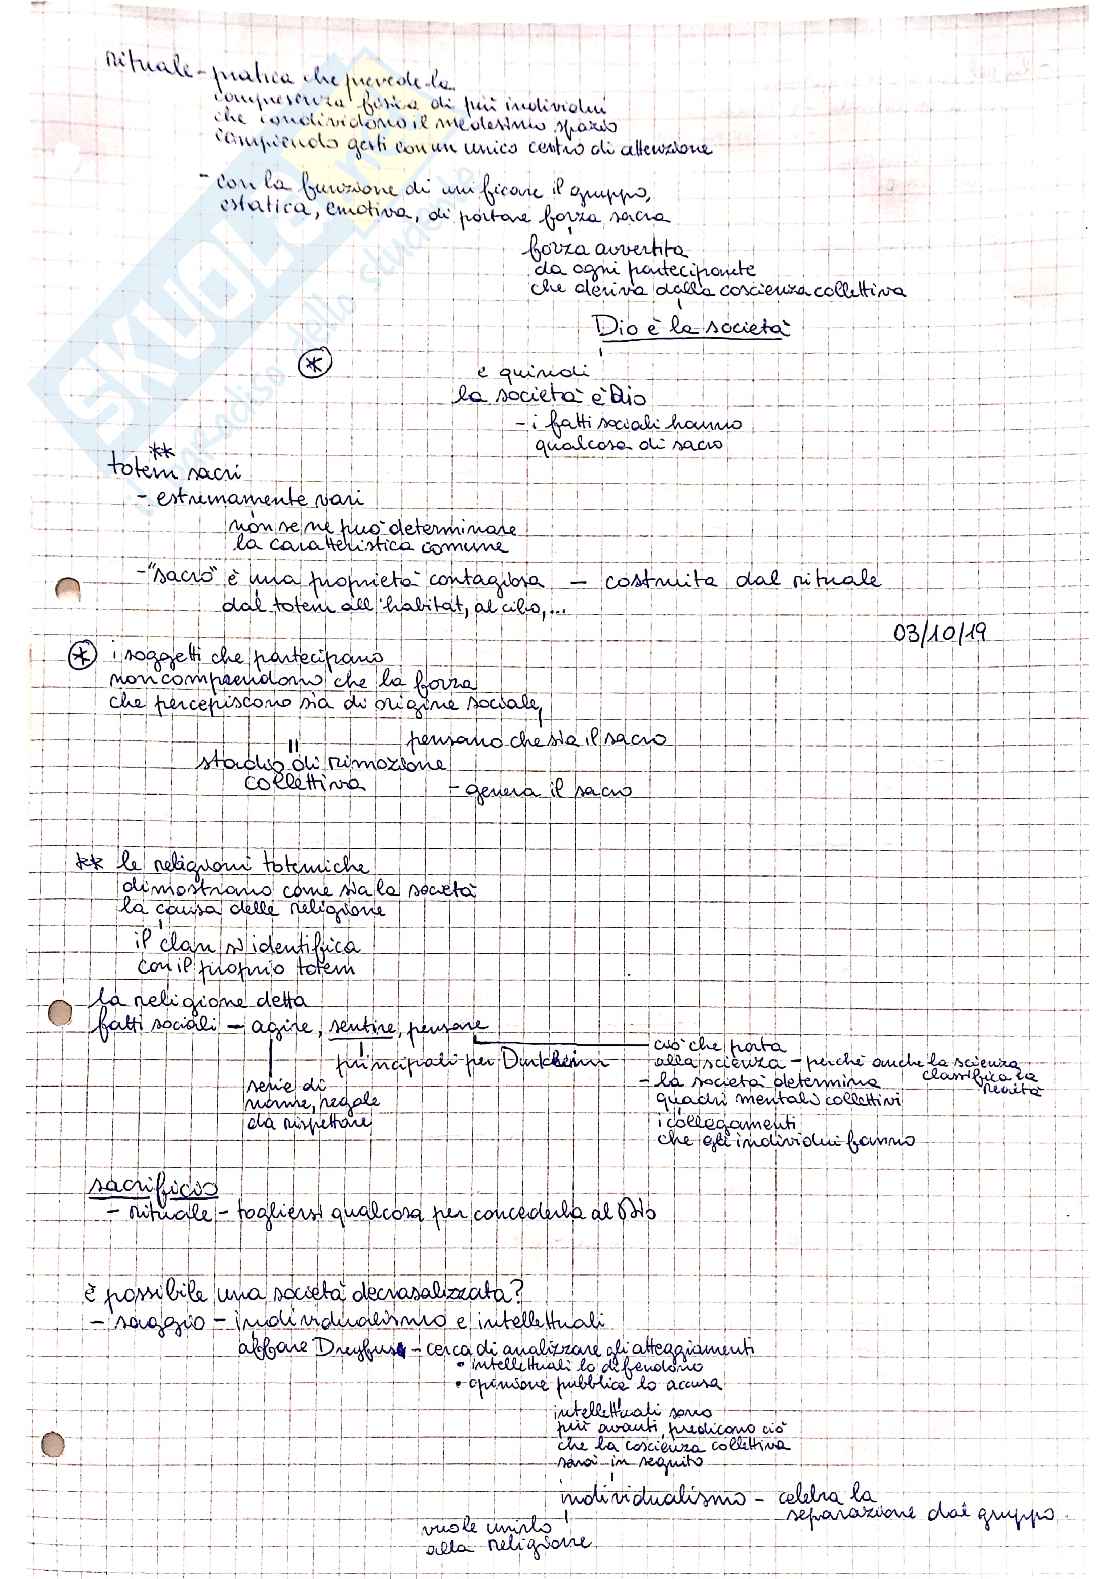 rituale - pratica che prevede la
compresenza fisica di più individui
che condividono il medesimo spazio
compiendo gesti con un unico centro di attenzione
- con la funzione di unificare il gruppo,
estatica, emotiva, di portare forza sacra
forza avvertita
da ogni partecipante
che deriva dalla coscienza collettiva
Dio è la società
*
e quindi
la società è Dio
- i fatti sociali hanno
qualcosa di sacro
**
totem sacri
- estremamente vari
non se ne può determinare
la caratteristica comune
- "sacro" è una proprietà contagiosa - costruita dal rituale
dal totem all'habitat, al cibo, ...
03/10/19
* i soggetti che partecipano
non comprendono che la forza
che percepiscono sia di origine sociale,
pensano che sia il sacro
stadio di rimozione
collettiva
- genera il sacro
** le religioni totemiche
dimostrano come sia la società
la causa delle religione
il clan si identifica
con il proprio totem
la religione detta
fatti sociali - agire, sentire, pensare
principali per Durkheim
serie di
norme, regole
da rispettare
ciò che porta
alla scienza - perché anche la scienza
classifica la
realtà
- la società determina
quadri mentali collettivi
i collegamenti
che gli individui fanno
sacrificio
- rituale - togliersi qualcosa per concederla al Dio
è possibile una società decrasalizzata?
- saggio - individualismo e intellettuali
affare Dreyfus - cerca di analizzare gli atteggiamenti
• intellettuali lo difendono
• opinione pubblica lo accusa
intellettuali sono
più avanti, predicono ciò
che la coscienza collettiva
sarà in seguito
individualismo - celebra la
separazione dal gruppo.
vuole unirlo
alla religione
SKUOLA.net
il paradiso dello studente